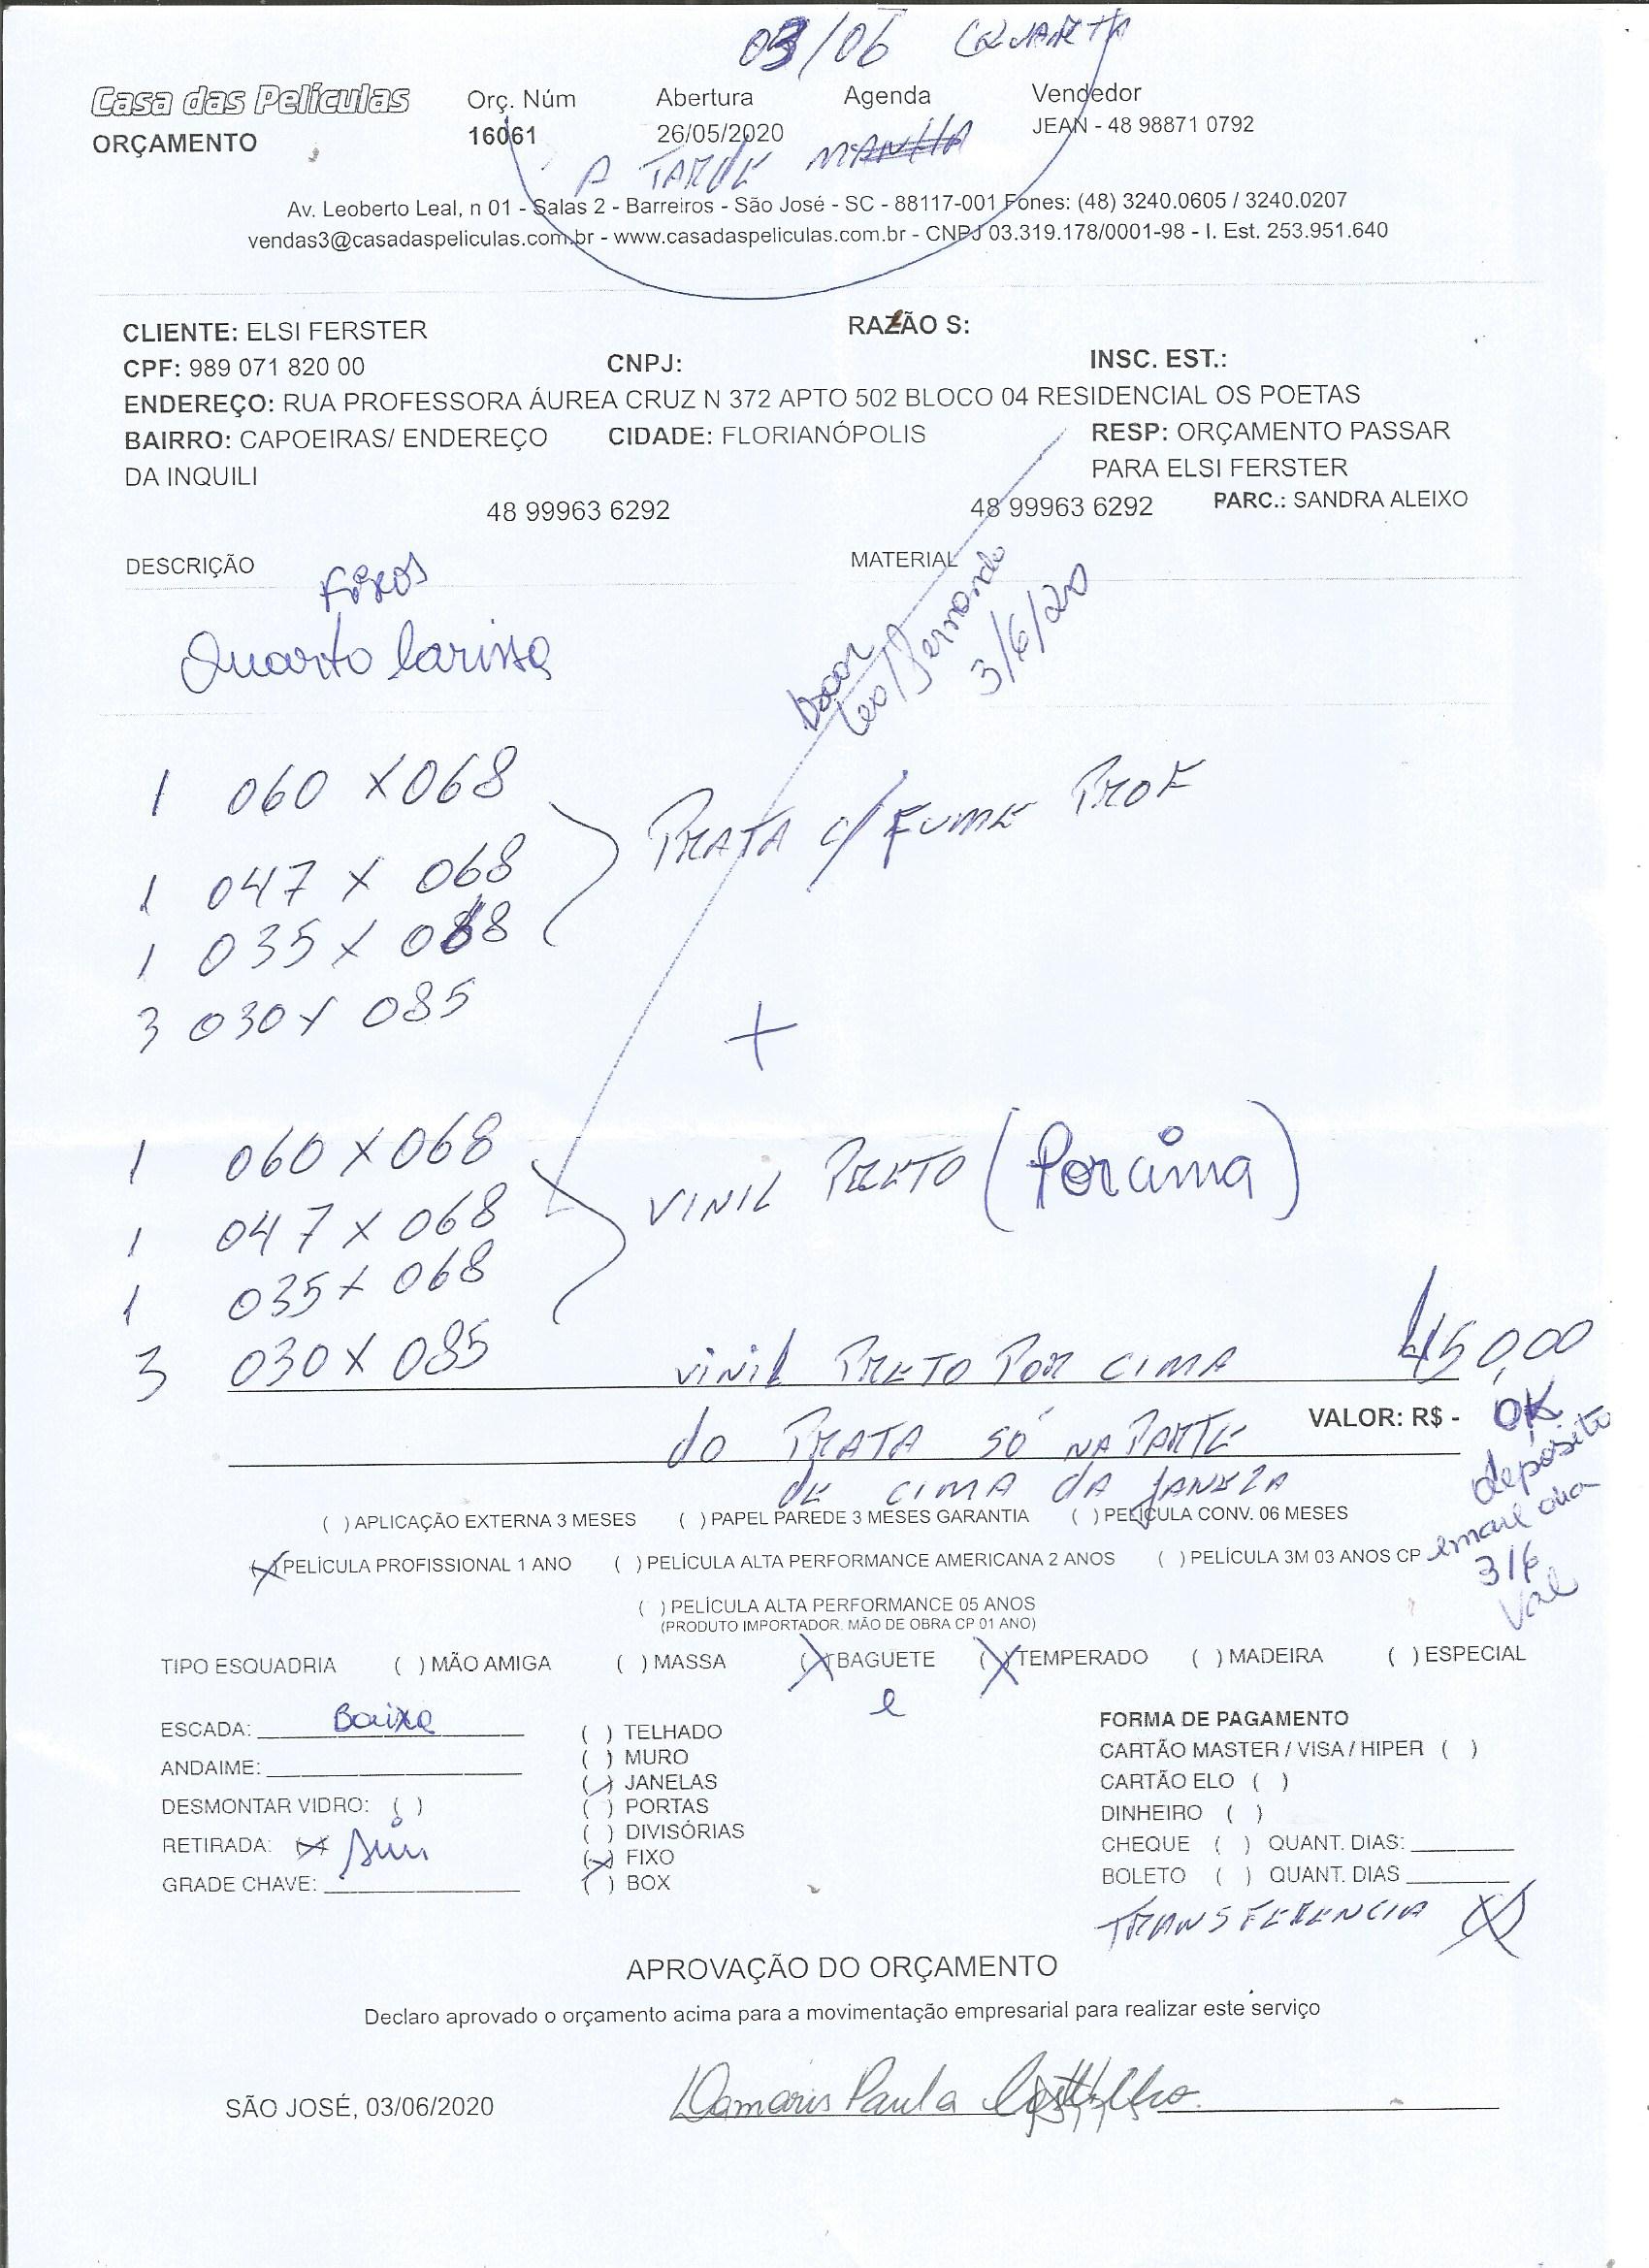 03/06 QUARTA
Casa das Películas Orç. Núm Abertura Agenda Vendedor
ORÇAMENTO 16061 26/05/2020 JEAN - 48 98871 0792
A TARDE MANHA
Av. Leoberto Leal, n 01 - Salas 2 - Barreiros - São José - SC - 88117-001 Fones: (48) 3240.0605 / 3240.0207
vendas3@casadaspeliculas.com.br - www.casadaspeliculas.com.br - CNPJ 03.319.178/0001-98 - I. Est. 253.951.640
CLIENTE: ELSI FERSTER RAZÃO S:
CPF: 989 071 820 00 CNPJ: INSC. EST.:
ENDEREÇO: RUA PROFESSORA ÁUREA CRUZ N 372 APTO 502 BLOCO 04 RESIDENCIAL OS POETAS
BAIRRO: CAPOEIRAS/ ENDEREÇO CIDADE: FLORIANÓPOLIS RESP: ORÇAMENTO PASSAR
DA INQUILI PARA ELSI FERSTER
48 99963 6292 48 99963 6292 PARC.: SANDRA ALEIXO
DESCRIÇÃO MATERIAL
Fixos
Quarto larissa
Leo/Fernando
3/6/20
1 060 X 068
1 047 X 068 PRATA c/ FUME PROF
1 035 X 068
3 030 X 085
+
1 060 X 068
1 047 X 068 VINIL PRETO (Por cima)
1 035 X 068
3 030 X 085 VINIL PRETO POR CIMA 450,00
do PRATA SÓ NA PARTE VALOR: R$ - OK
DE CIMA DA JANELA depósito
( ) APLICAÇÃO EXTERNA 3 MESES ( ) PAPEL PAREDE 3 MESES GARANTIA ( ) PELÍCULA CONV. 06 MESES
email dia
(X) PELÍCULA PROFISSIONAL 1 ANO ( ) PELÍCULA ALTA PERFORMANCE AMERICANA 2 ANOS ( ) PELÍCULA 3M 03 ANOS CP
3/6
Val
( ) PELÍCULA ALTA PERFORMANCE 05 ANOS
(PRODUTO IMPORTADOR. MÃO DE OBRA CP 01 ANO)
TIPO ESQUADRIA ( ) MÃO AMIGA ( ) MASSA (X) BAGUETE (X) TEMPERADO ( ) MADEIRA ( ) ESPECIAL
e
ESCADA: Baixa ( ) TELHADO FORMA DE PAGAMENTO
( ) MURO CARTÃO MASTER / VISA / HIPER ( )
ANDAIME: (X) JANELAS CARTÃO ELO ( )
DESMONTAR VIDRO: ( ) ( ) PORTAS DINHEIRO ( )
( ) DIVISÓRIAS
RETIRADA: (X) Sim (X) FIXO CHEQUE ( ) QUANT. DIAS:
GRADE CHAVE: ( ) BOX BOLETO ( ) QUANT. DIAS
TRANSFERENCIA (X)
APROVAÇÃO DO ORÇAMENTO
Declaro aprovado o orçamento acima para a movimentação empresarial para realizar este serviço
SÃO JOSÉ, 03/06/2020 Damaris Paula